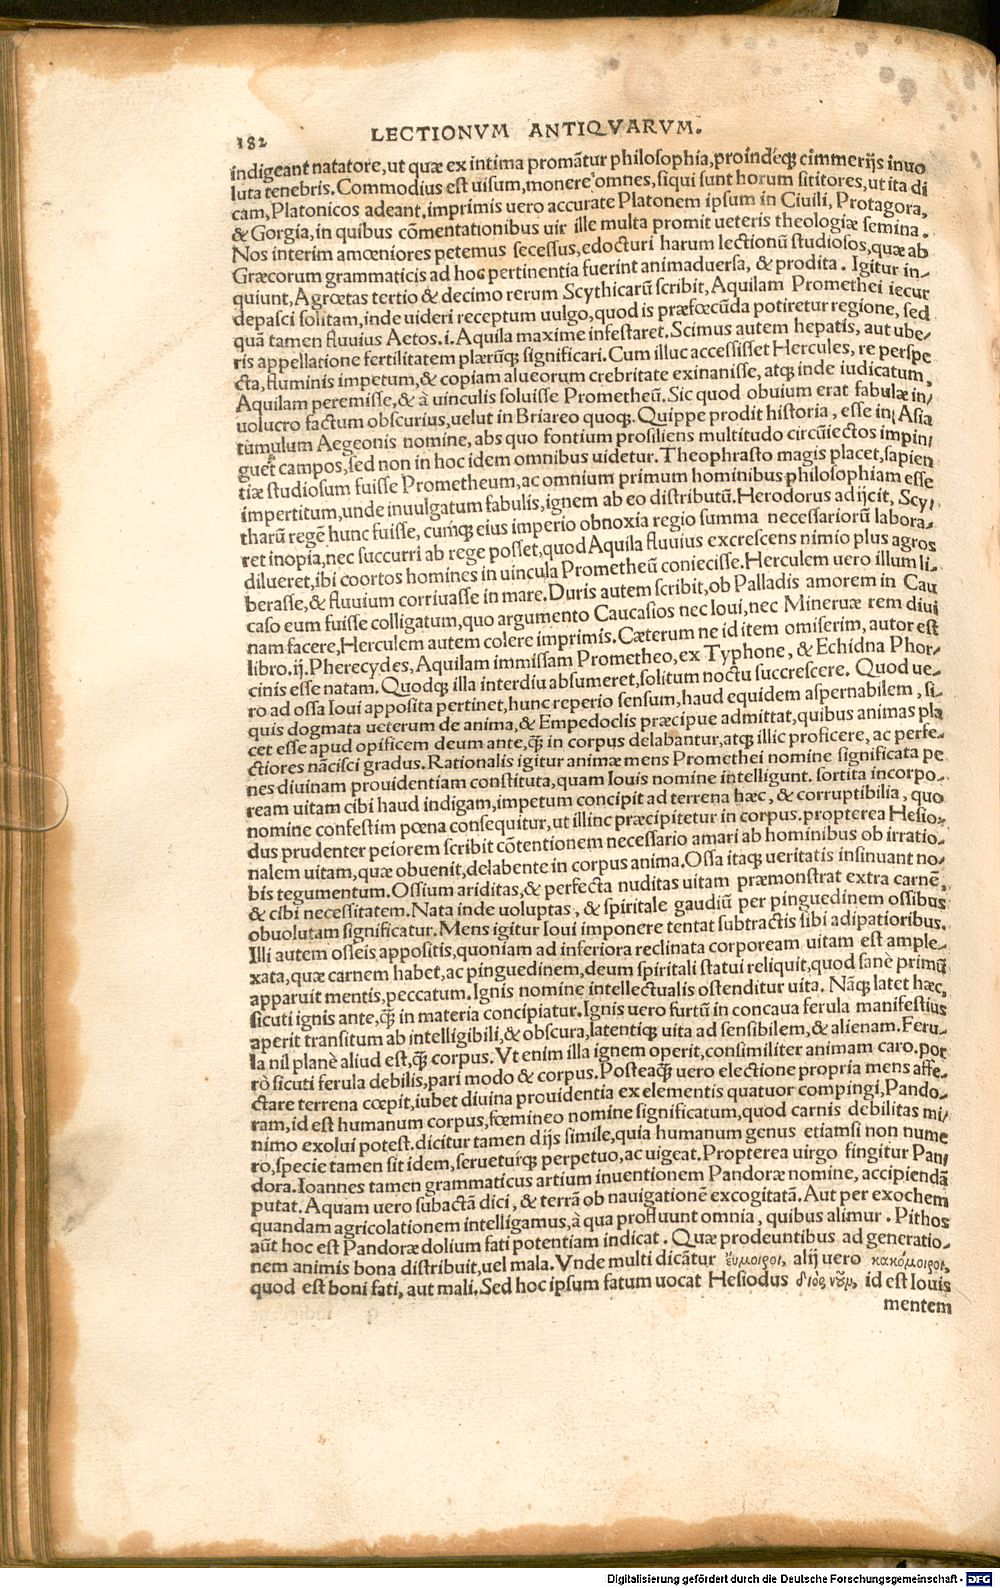 182 LECTIONVM ANTIQVARVM.
indigeant natatore,ut quæ ex intima promãtur philosophia,proindéq; cimmerijs inuo
luta tenebris.Commodius est uisum,monere omnes,siqui sunt horum sititores,ut ita di
cam,Platonicos adeant,imprimis uero accurate Platonem ipsum in Ciuili, Protagora,
& Gorgia,in quibus cõmentationibus uir ille multa promit ueteris theologiæ semina.
Nos interim amœniores petemus secessus,edocturi harum lectionũ studiosos,quæ ab
Græcorum grammaticis ad hoc pertinentia fuerint animaduersa, & prodita. Igitur in-
quiunt,Agrœtas tertio & decimo rerum Scythicarũ scribit,Aquilam Promethei iecur
depasci solitam,inde uideri receptum uulgo,quod is præfœcũda potiretur regione, sed
quã tamen fluuius Aetos.i.Aquila maxime infestaret.Scimus autem hepatis, aut ube-
ris appellatione fertilitatem plærũq; significari.Cum illuc accessisset Hercules, re perspe
cta,fluminis impetum,& copiam alueorum crebritate exinanisse, atq; inde iudicatum,
Aquilam peremisse,& à uinculis soluisse Prometheũ.Sic quod obuium erat fabulæ in/
uolucro factum obscurius,uelut in Briareo quoq;.Quippe prodit historia, esse in Asia
tumulum Aegeonis nomine,abs quo fontium prosiliens multitudo circũiectos impin/
guet campos,sed non in hoc idem omnibus uidetur.Theophrasto magis placet,sapien
tiæ studiosum fuisse Prometheum,ac omnium primum hominibus philosophiam esse
impertitum,unde inuulgatum fabulis,ignem ab eo distributũ.Herodorus adijcit, Scy/
tharũ regẽ hunc fuisse, cumq; eius imperio obnoxia regio summa necessariorũ labora-
ret inopia,nec succurri ab rege posset,quod Aquila fluuius excrescens nimio plus agros
dilueret,ibi coortos homines in uincula Prometheũ coniecisse.Herculem uero illum li-
berasse,& fluuium corriuasse in mare.Duris autem scribit,ob Palladis amorem in Cau
caso eum fuisse colligatum,quo argumento Caucasios nec Ioui,nec Mineruæ rem diui
nam facere,Herculem autem colere imprimis.Cæterum ne id item omiserim, autor est
libro.ij.Pherecydes,Aquilam immissam Prometheo,ex Typhone, & Echidna Phor-
cinis esse natam. Quodq; illa interdiu absumeret,solitum noctu succrescere. Quod ue-
ro ad ossa Ioui apposita pertinet,hunc reperio sensum,haud equidem aspernabilem, si-
quis dogmata ueterum de anima,& Empedoclis præcipue admittat,quibus animas pla
cet esse apud opificem deum ante,q̃ in corpus delabantur,atq; illic proficere, ac perfe-
ctiores nãcisci gradus.Rationalis igitur animæ mens Promethei nomine significata pe
nes diuinam prouidentiam constituta,quam Iouis nomine intelligunt. sortita incorpo-
ream uitam cibi haud indigam,impetum concipit ad terrena hæc, & corruptibilia, quo
nomine confestim pœna consequitur,ut illinc præcipitetur in corpus.propterea Hesio-
dus prudenter peiorem scribit cõtentionem necessario amari ab hominibus ob irratio-
nalem uitam,quæ obuenit,delabente in corpus anima.Ossa itaq; ueritatis insinuant no-
bis tegumentum.Ossium ariditas,& perfecta nuditas uitam præmonstrat extra carnẽ,
& cibi necessitatem.Nata inde uoluptas, & spiritale gaudiũ per pinguedinem ossibus
obuolutam significatur.Mens igitur Ioui imponere tentat subtractis sibi adipatioribus.
Illi autem osseis appositis,quoniam ad inferiora reclinata corpoream uitam est ample-
xata,quæ carnem habet,ac pinguedinem,deum spiritali statui reliquit,quod sanè primũ
apparuit mentis,peccatum.Ignis nomine intellectualis ostenditur uita. Nãq; latet hæc,
sicuti ignis ante,q̃ in materia concipiatur.Ignis uero furtũ in concaua ferula manifestius
aperit transitum ab intelligibili,& obscura,latentiq; uita ad sensibilem,& alienam.Feru-
la nil planè aliud est,q̃ corpus.Vt enim illa ignem operit,consimiliter animam caro.por
rò sicuti ferula debilis,pari modo & corpus.Posteaq̃ uero electione propria mens affe-
ctare terrena cœpit,iubet diuina prouidentia ex elementis quatuor compingi,Pando-
ram,id est humanum corpus,fœmineo nomine significatum,quod carnis debilitas mi/
nimo exolui potest.dicitur tamen dijs simile,quia humanum genus etiamsi non nume
ro,specie tamen sit idem,serueturq; perpetuo,ac uigeat.Propterea uirgo fingitur Pan/
dora.Ioannes tamen grammaticus artium inuentionem Pandoræ nomine, accipiendã
putat.Aquam uero subactã dici, & terrã ob nauigationẽ excogitatã.Aut per exochem
quandam agricolationem intelligamus,à qua profluunt omnia, quibus alimur. Pithos
aũt hoc est Pandoræ dolium fati potentiam indicat. Quæ prodeuntibus ad generatio-
nem animis bona distribuit,uel mala.Vnde multi dicãtur ἔυμοιροι, alij uero κακόμοιροι,
quod est boni fati, aut mali.Sed hoc ipsum fatum uocat Hesiodus διὸς νοῦν, id est Iouis
mentem
Digitalisierung gefördert durch die Deutsche Forschungsgemeinschaft - DFG